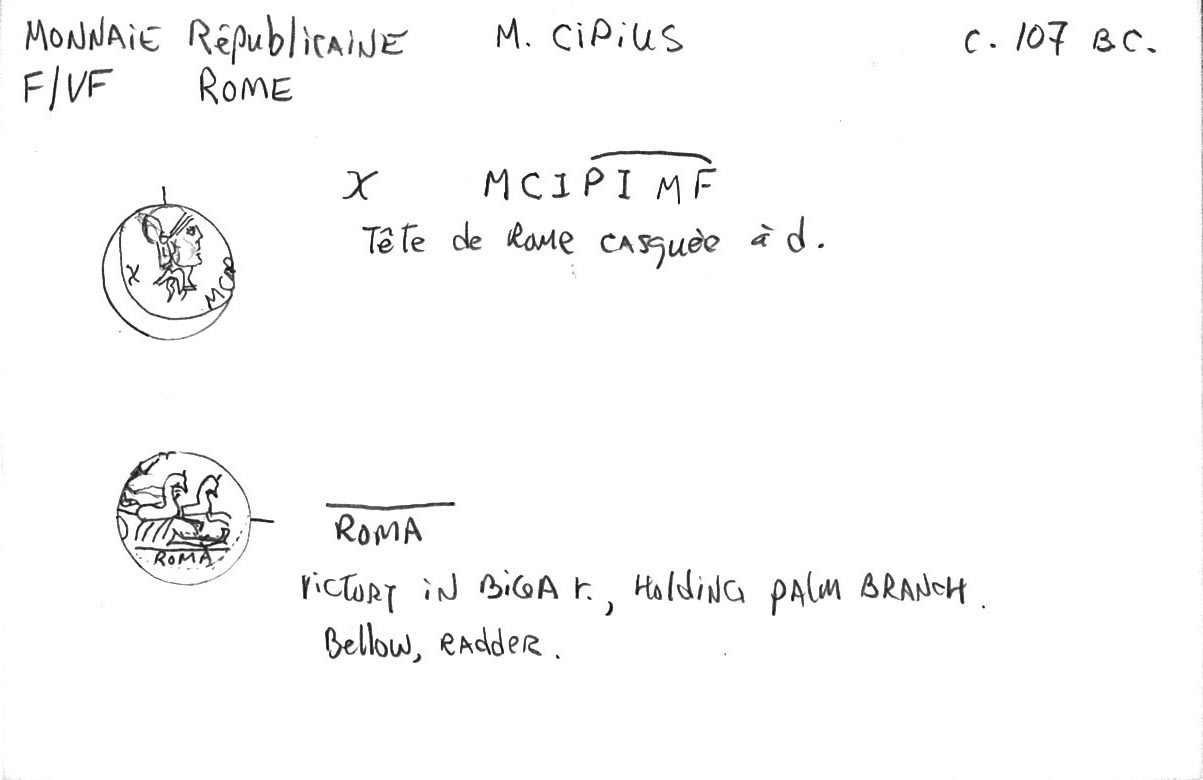 MONNAIE RépublicAINE M. CIPIUS C. 107 B.C.
F/VF ROME
X MCIPI MF
Tête de Rome CASquée à d.
X MCIP
ROMA
ROMA
VICTORY IN BIGA r., HoldiNG PAlM BRANCH.
Bellow, RAddER.